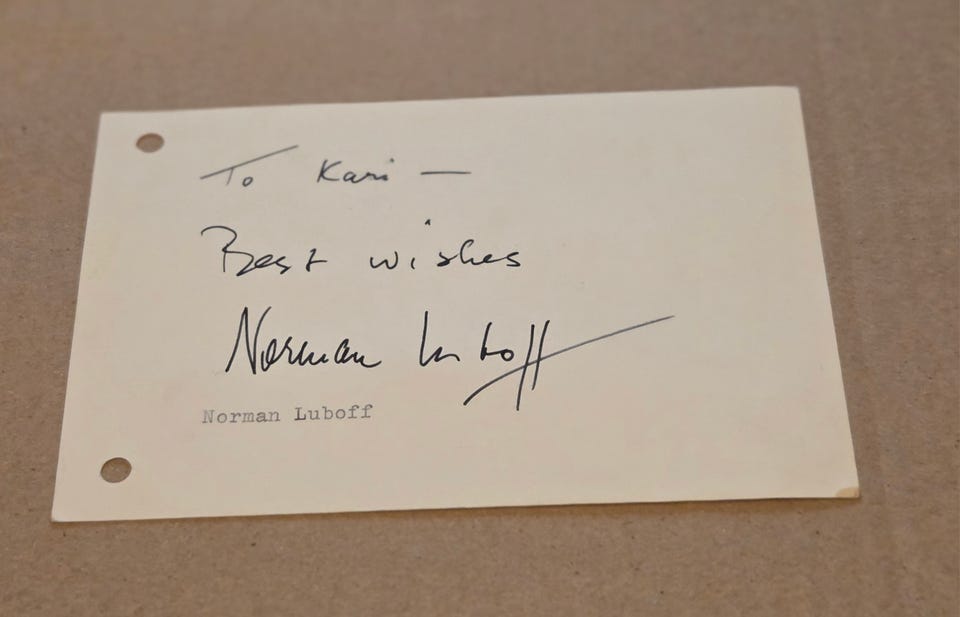 To Kari —
Best wishes
Norman Luboff
Norman Luboff